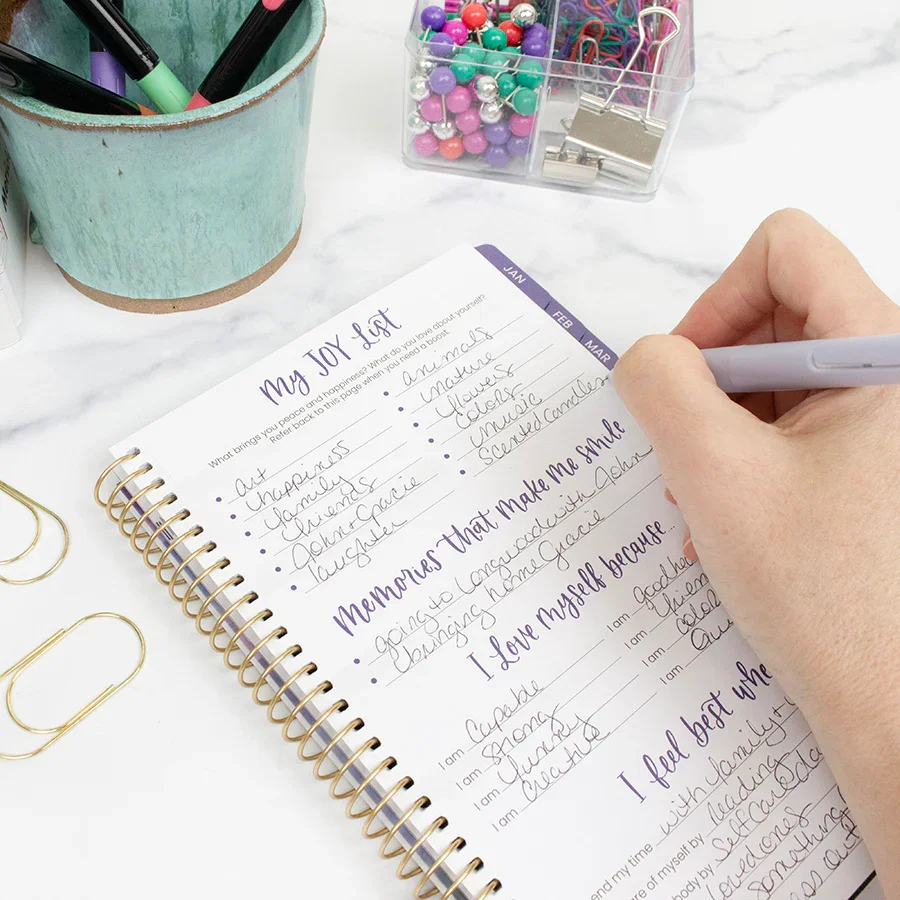 JAN
FEB
MAR
My JOY List
What brings you peace and happiness? What do you love about yourself?
Refer back to this page when you need a boost.
art
happiness
family
friends
John + Gracie
laughter
animals
nature
flowers
colors
music
Scented candles
Memories that make me smile
going to Longwood with John
bringing home Gracie
I love myself because...
I am Capable
I am Strong
I am Funny
I am Creative
I am
I am
I am
I am
I feel best whe
end my time with family +
re of myself by reading
body by Self Care
loved ones
something